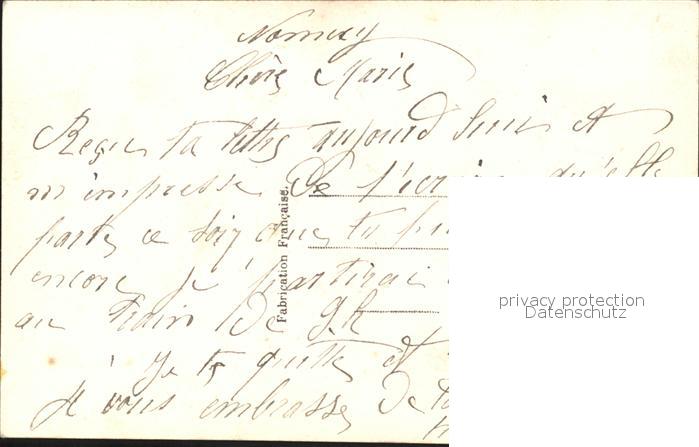 Nomeny
Chère Marie
Reçu ta lettre aujourd huis et
m'impresse de t'ecrire qu'elle
parte ce soir que tu
encore je partirai
au train de 9h
je te quitte et
je vous embrasse de
Fabrication Française.
privacy protection
Datenschutz